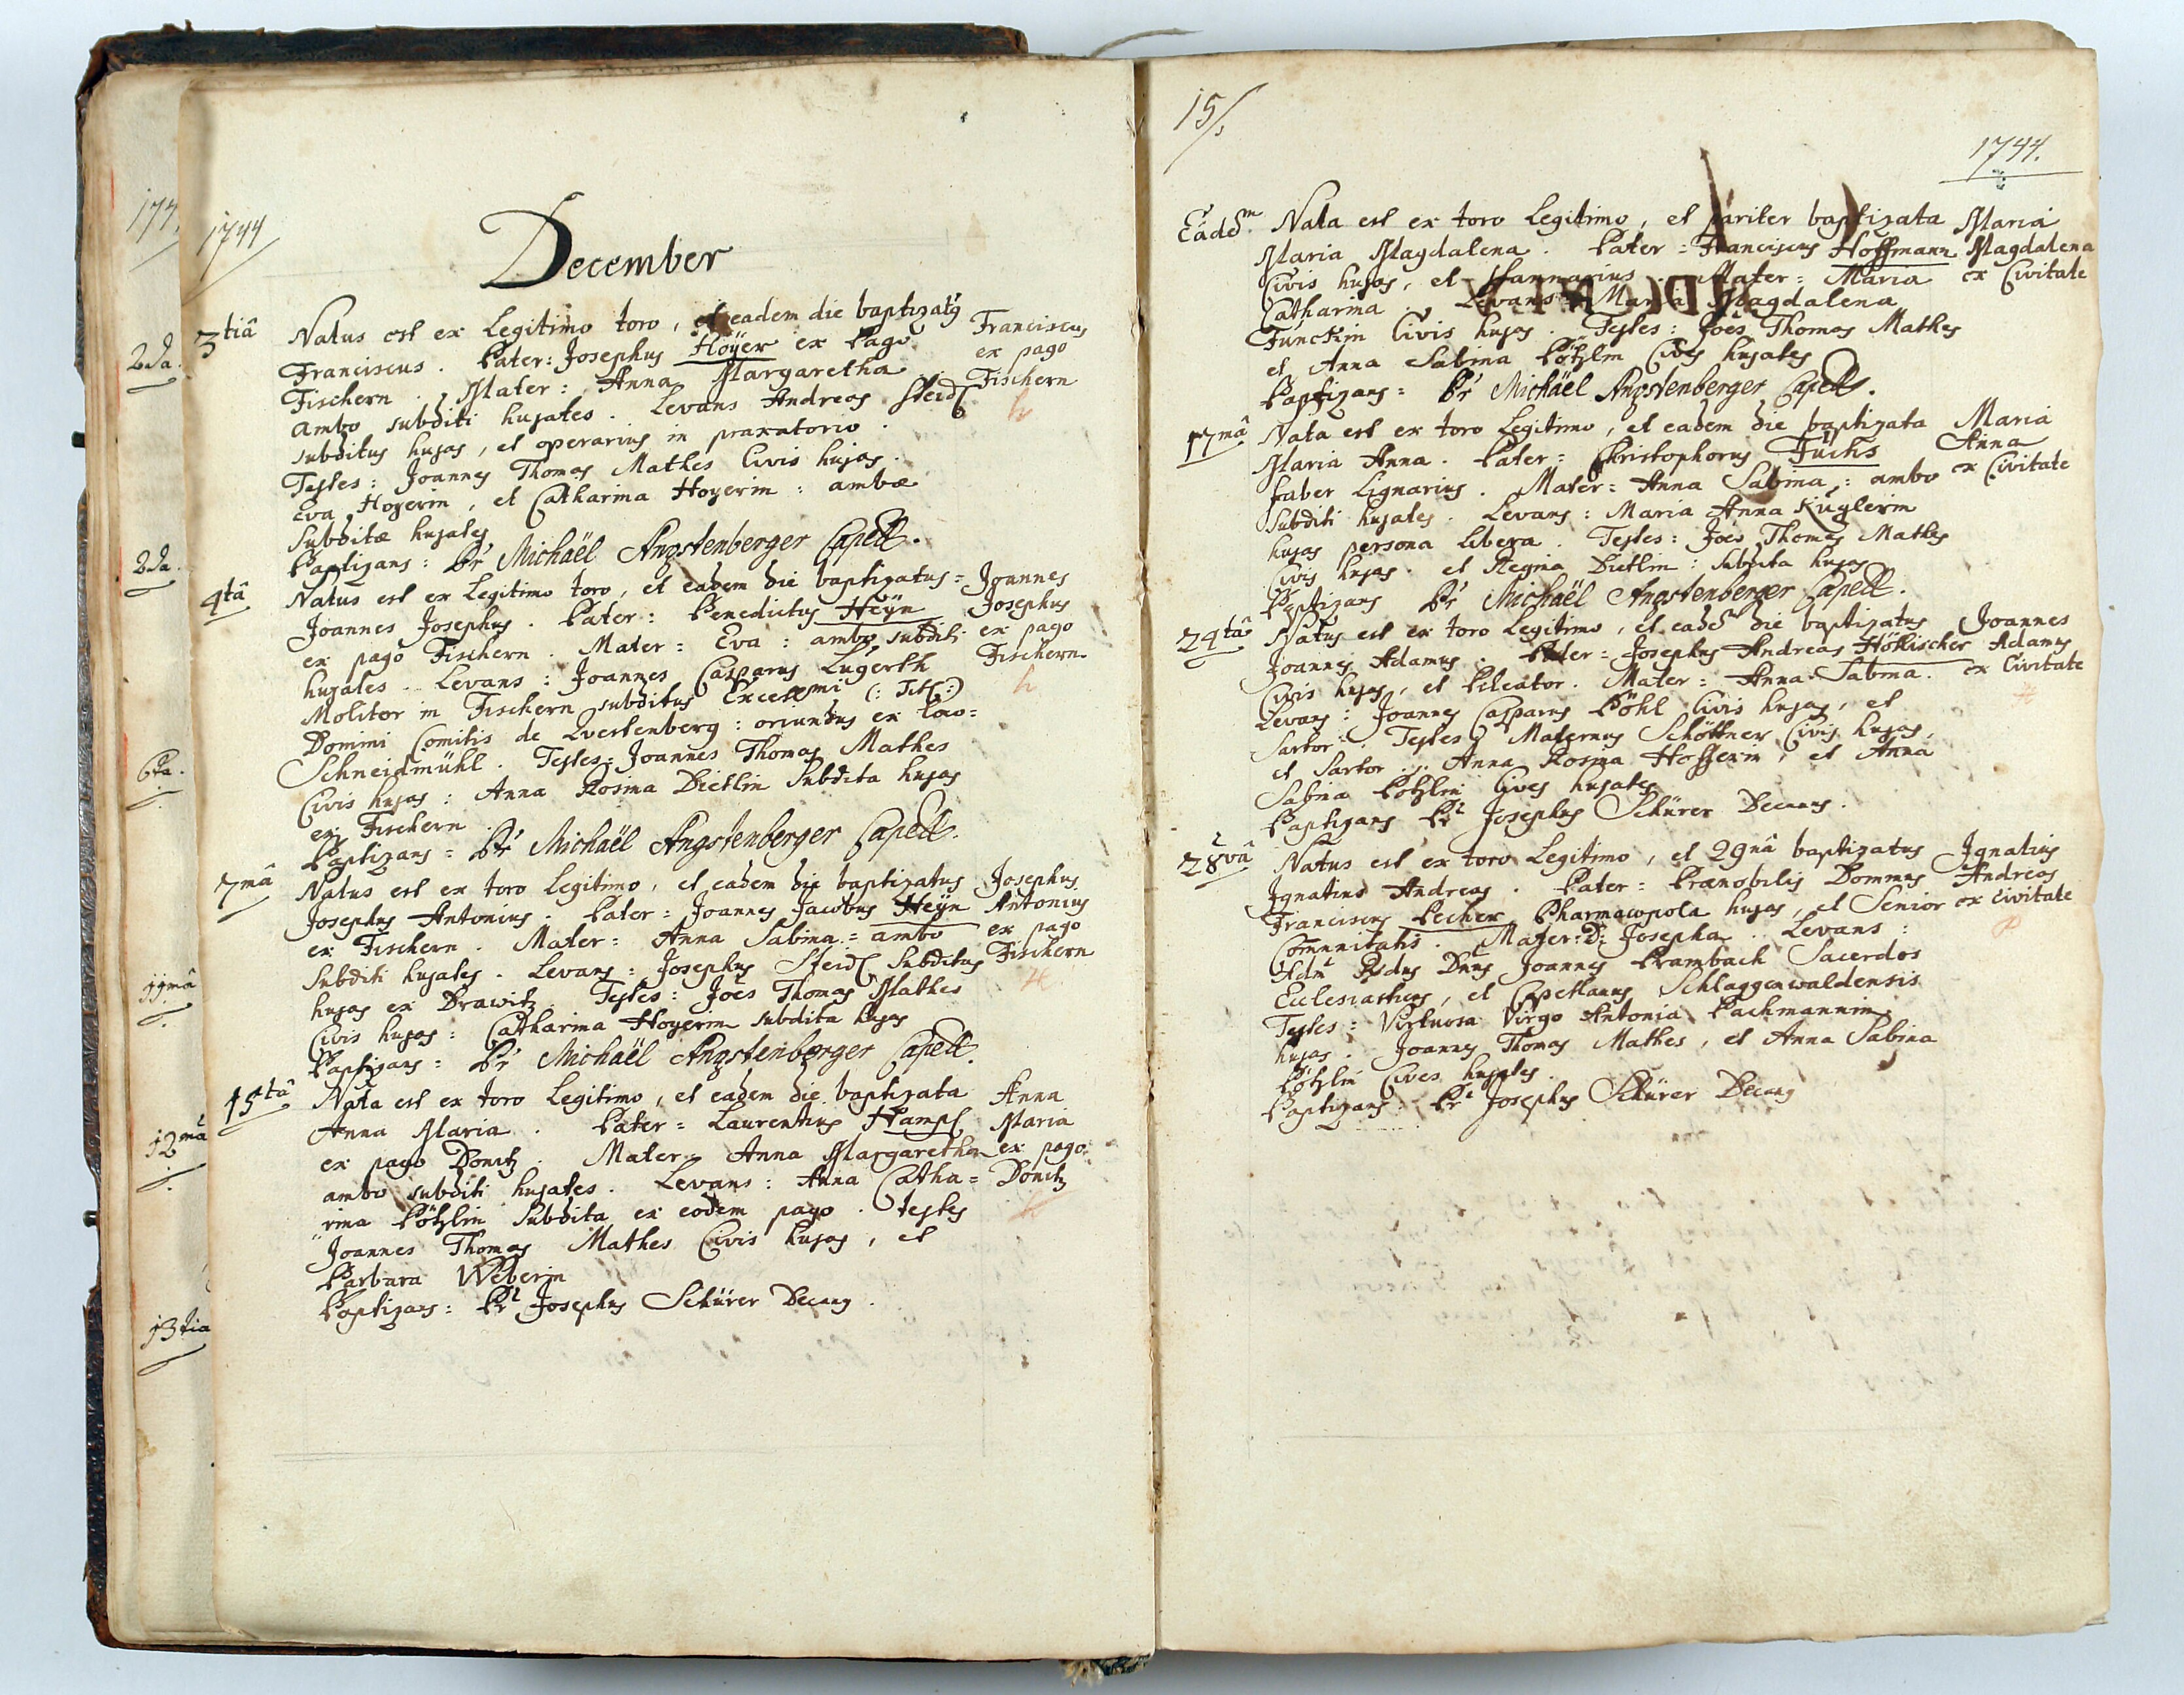 1744
December
3tiâ Natus est ex Legitimo toro, et eadem die baptizatus Franciscus
Franciscus. Pater: Josephus Höyer ex Pago ex pago
Fischern. Mater: Anna Margaretha Fischern
ambo subditi hujates. Levans Andreas h
subditus hujas, et operarius in praxatorio.
Testes: Joannes Thomas Mathes Civis hujas.
Eva Hoyerin, et Catharina Hoyerin: ambæ
Subditæ hujates
Baptizans: Pr Michäel Angstenberger Capell.
4tâ Natus est ex Legitimo toro, et eadem die baptizatus = Joannes
Joannes Josephus. Pater: Benedictus Heÿn Josephus
ex pago Fischern. Mater: Eva: ambo subditi ex pago
hujates. Levans: Joannes Casparus Lugerth Fischern
Molitor in Fischern subditus Excellmi (: Tit :) h
Domini Comitis de Questenberg: oriundus ex loco =
Schneidmühl. Testes: Joannes Thomas Mathes
Civis hujas: Anna Rosina Dietlin Subdita hujas
ex Fischern
Baptizans = Pr Michäel Angstenberger Capell.
7mâ Natus est ex toro Legitimo, et eadem die baptizatus Josephus
Josephus Antonius. Pater: Joannes Jacobus Heÿn Antonius
ex Fischern. Mater: Anna Sabina = ambo ex pago
Subditi hujates. Levans: Josephus Subditus Fischern
hujas ex Drawitz. Testes: Joes Thomas Mathes H
Civis hujas: Catharina Hoyerin subdita hujas
Baptizans: Pr Michäel Angstenberger Capell.
15tâ Nata est ex toro Legitimo, et eadem die baptizata Anna
Anna Maria. Pater = Laurentius Hampl Maria
ex pago Donitz. Mater: Anna Margaretha ex pago
ambo subditi hujates. Levans: Anna Catha= Donitz
rina Pötzlin Subdita ex eodem pago. Testes h
Joannes Thomas Mathes Civis hujas, et
Barbara Weberin
Baptizans: Pr Josephus Schürer Decanus.
15/.
1744.
Eadem Nata est ex toro Legitimo, et pariter baptizata Maria
Maria Magdalena. Pater: Franciscus Hoffmann Magdalena
Civis hujas, et Mater: Maria ex Civitate
Catharina. Levans Maria Magdalena
Funckin Civis hujas. Testes: Joes Thomas Mathes
et Anna Sabina Pötzlin Cives hujates
Baptizans = Pr Michäel Angstenberger Capell.
17mâ Nata est ex toro Legitimo, et eadem die baptizata Maria
Maria Anna. Pater: Christophorus Fuchs Anna
faber Lignarius. Mater: Anna Sabina: ambo ex Civitate
Subditi hujates. Levans: Maria Anna Kuglerin
hujas persona libera. Testes: Joes Thomas Mathes
Civis hujas. et Regina Dietlin: subdita hujas
Baptizans Pr Michäel Angstenberger Capell.
24tâ Natus est ex toro Legitimo, et eadem die baptizatus Joannes
Joannes Adamus. Pater: Josephus Andreas Höltischer Adamus
Civis hujas, et Pileator. Mater: Anna Sabina. ex Civitate
Levans: Joannes Casparus Pöhl Civis hujas, et H
Sartor. Testes Maternus Schöttner Civis hujas,
et Sartor. Anna Rosina Hofferin, et Anna
Sabina Pötzlin Cives hujates
Baptizans Pr Josephus Schürer Decanus.
28vâ Natus est ex toro Legitimo, et 29nâ baptizatus Ignatius
Ignatius Andreas. Pater: Prænobilis Dominus Andreas
Franciscus Becher Pharmacopola hujas, et Senior ex Civitate
Communitatis. Mater: D: Josepha. Levans: P
Adm Rdus Dnus Joannes Brambach Sacerdos
Ecclesiasticus, et Capellanus Schlaggenwaldensis
Testes: Virtuosa Virgo Antonia Bachmannin
hujas. Joannes Thomas Mathes, et Anna Sabina
Pötzlin Cives hujates.
Baptizans: Pr Josephus Schürer Decanus
177
2da.
2da.
6ta.
11mâ
12mâ
13tia